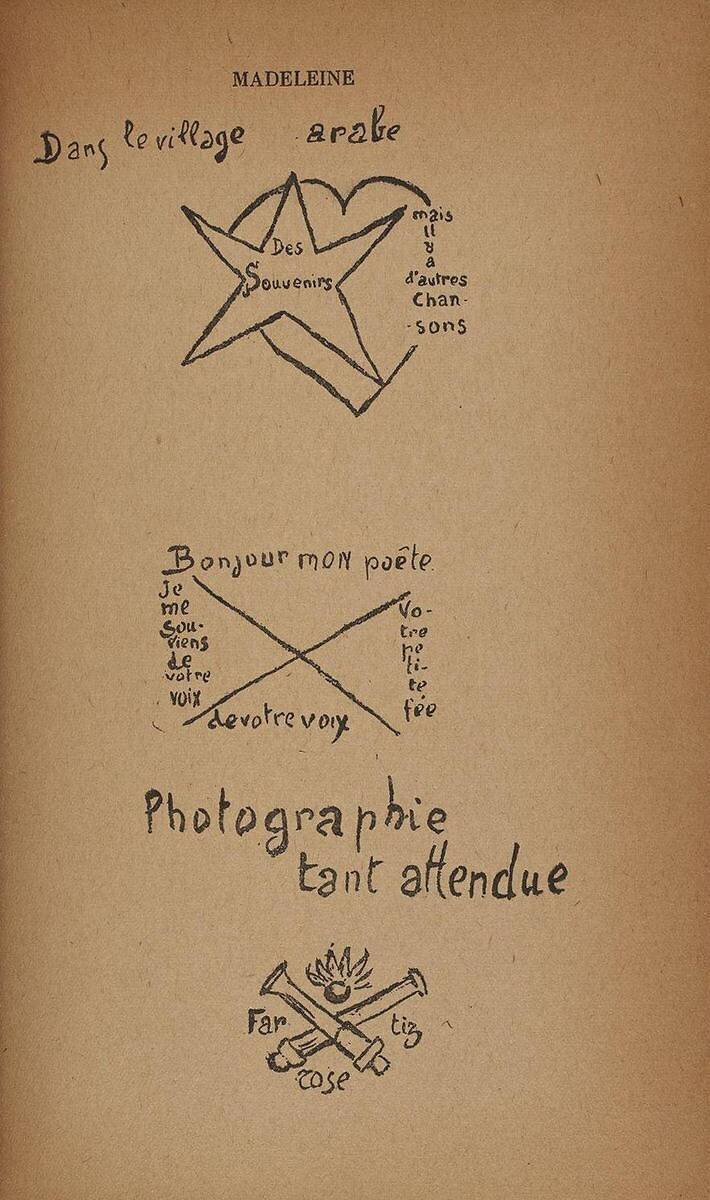 MADELEINE
Dans le village arabe
Des
Souvenirs
mais
il
y
a
d'autres
Chan-
-sons
Bonjour mon poête
Je
me
Sou-
viens
de
votre
voix
Vo-
tre
pe
ti-
te
fée
de votre voix
Photographie
tant attendue
Far tiz
rose